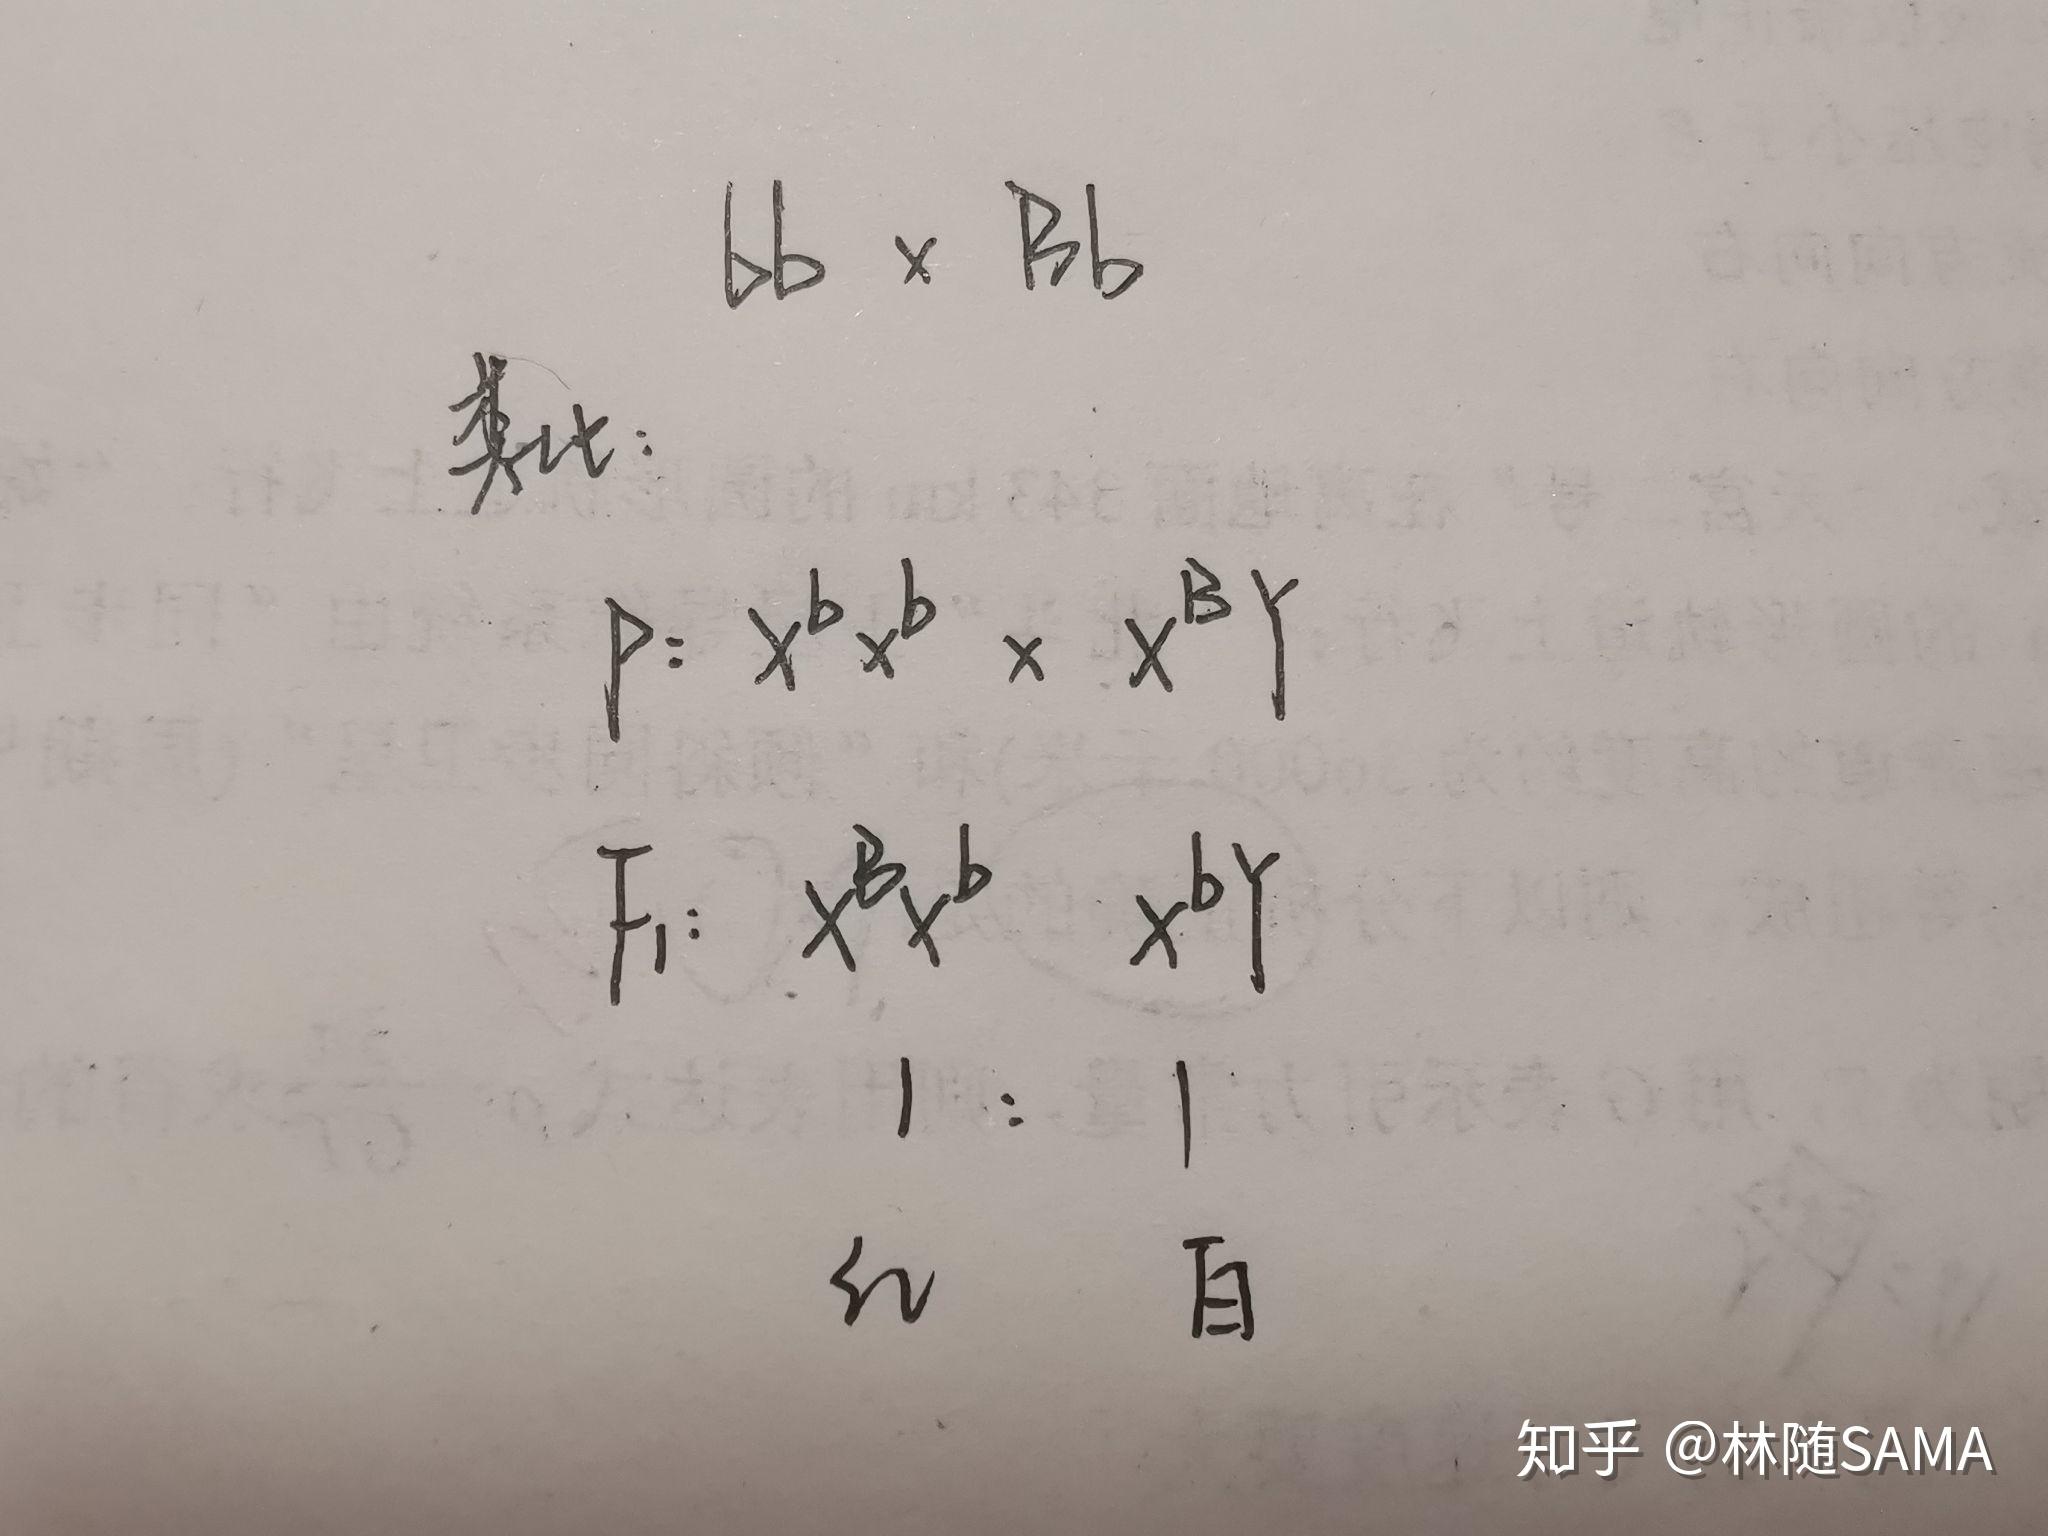 bb × Bb
类比:
P: XᵇXᵇ × XᴮY
F₁: XᴮXᵇ XᵇY
1 : 1
红 白
知乎 @林随SAMA